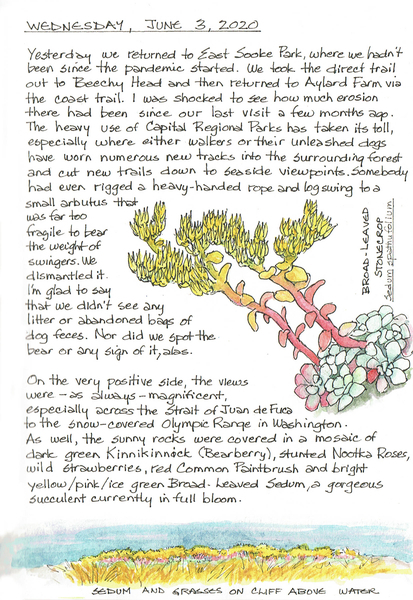 WEDNESDAY, JUNE 3, 2020
Yesterday we returned to East Sooke Park, where we hadn't
been since the pandemic started. We took the direct trail
out to Beechy Head and then returned to Aylard Farm via
the coast trail. I was shocked to see how much erosion
there had been since our last visit a few months ago.
The heavy use of Capital Regional Parks has taken its toll,
especially where either walkers or their unleashed dogs
have worn numerous new tracks into the surrounding forest
and cut new trails down to seaside viewpoints. Somebody
had even rigged a heavy-handed rope and log swing to a
small arbutus that
was far too
fragile to bear
the weight of
swingers. We
dismantled it.
I'm glad to say
that we didn't see any
litter or abandoned bags of
dog feces. Nor did we spot the
bear or any sign of it, alas.
BROAD-LEAVED
STONECROP
Sedum spathulifolium
On the very positive side, the views
were - as always - magnificent,
especially across the Strait of Juan de Fuca
to the snow-covered Olympic Range in Washington.
As well, the sunny rocks were covered in a mosaic of
dark green Kinnikinnick (Bearberry), stunted Nootka Roses,
wild strawberries, red Common Paintbrush and bright
yellow/pink/ice green Broad-Leaved Sedum, a gorgeous
succulent currently in full bloom.
SEDUM AND GRASSES ON CLIFF ABOVE WATER